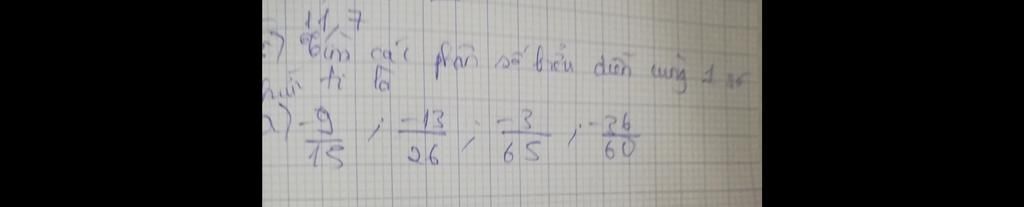 11, 7
Tìm các phân số biểu diễn cùng 1 số
hữu tỉ là
a) -9/15 ; -13/26 ; -3/65 ; -36/60